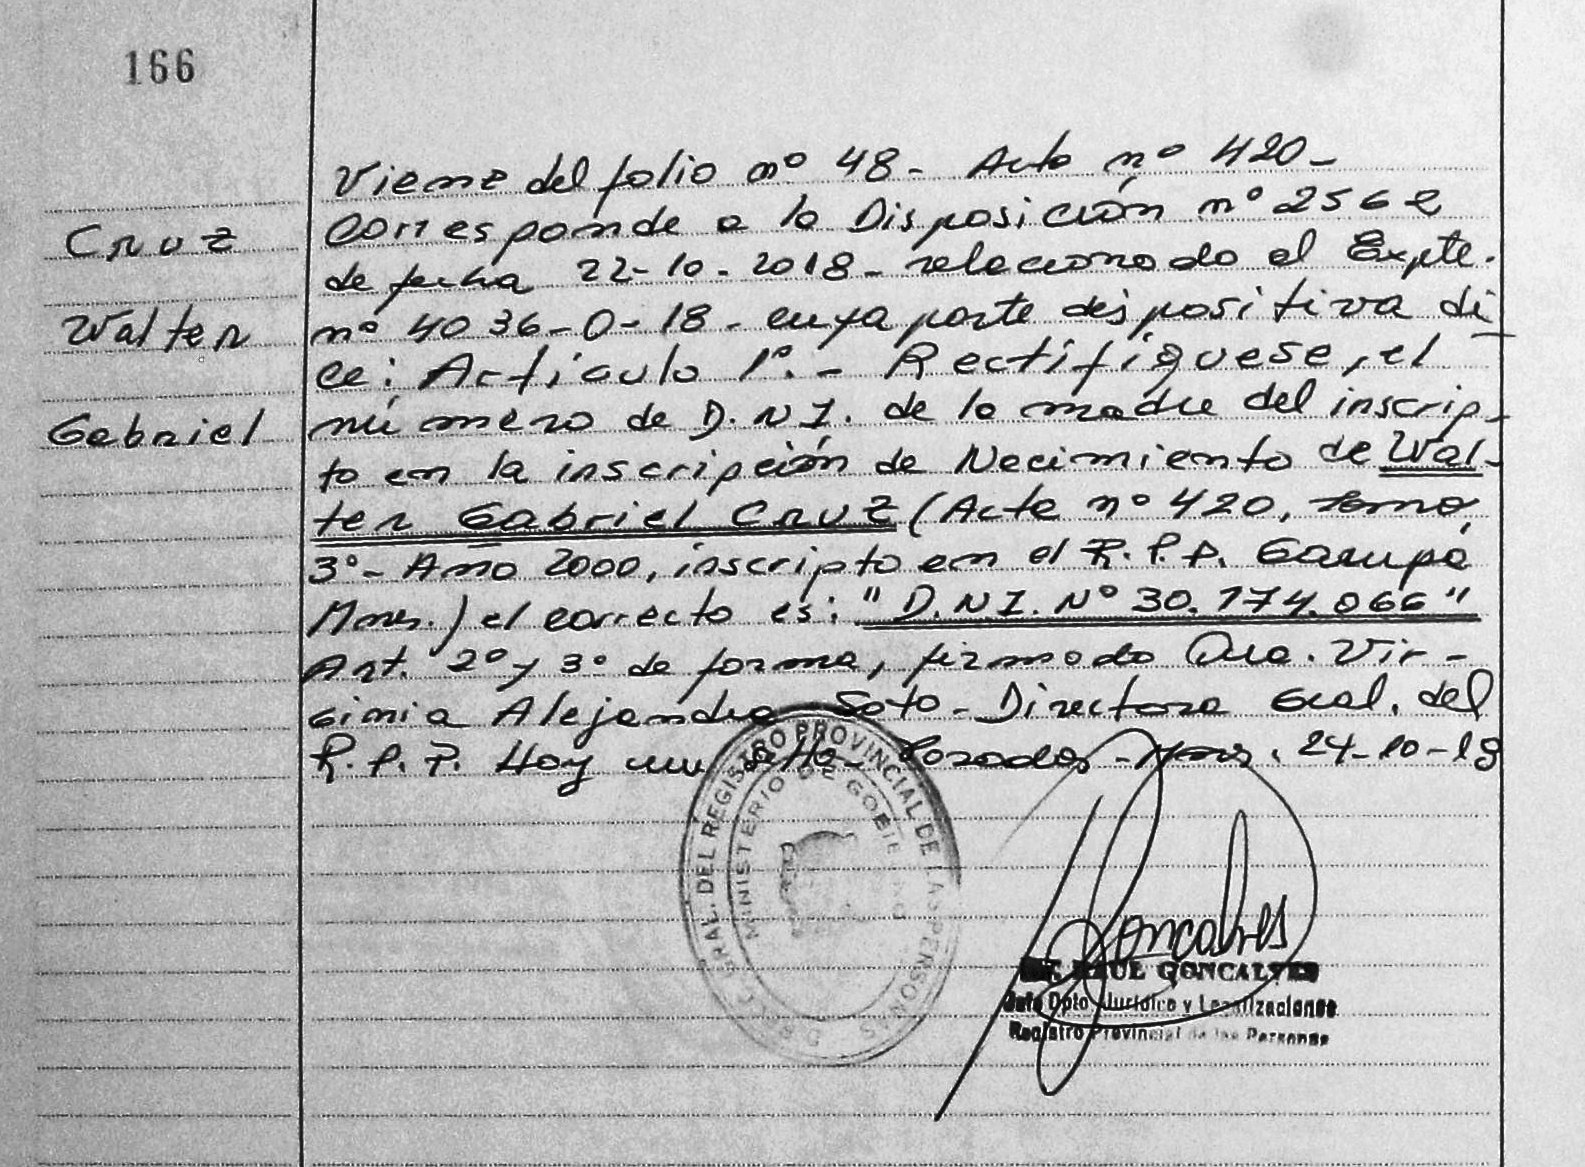 166
Viene del folio nº 48 - Acta nº 420 -
Corresponde a la Disposición nº 2562
de fecha 22-10-2018 - relacionado al Expte.
nº 4036-0-18 - cuya parte dispositiva di
ce: Artículo 1º. - Rectifíquese, el
número de D.N.I. de la madre del inscrip-
to en la inscripción de Nacimiento de Wal-
ter Gabriel Cruz (Acta nº 420, tomo
3º - Año 2000, inscripto en el R.P.P. Garupá
Mnes.) el correcto es: "D.N.I. Nº 30.174.066"
Art. 2º y 3º de forma, firmado Dra. Vir-
ginia Alejandra Soto - Directora Gral. del
R.P.P. Hoy Posadas - Mnes. 24-10-18
Cruz
Walter
Gabriel
GRAL. DEL REGISTRO PROVINCIAL DE LAS PERSONAS
MINISTERIO DE GOBIERNO
Goncalves
RAUL GONCALVES
Jefe Dpto. Jurídico y Legalizaciones
Registro Provincial de las Personas